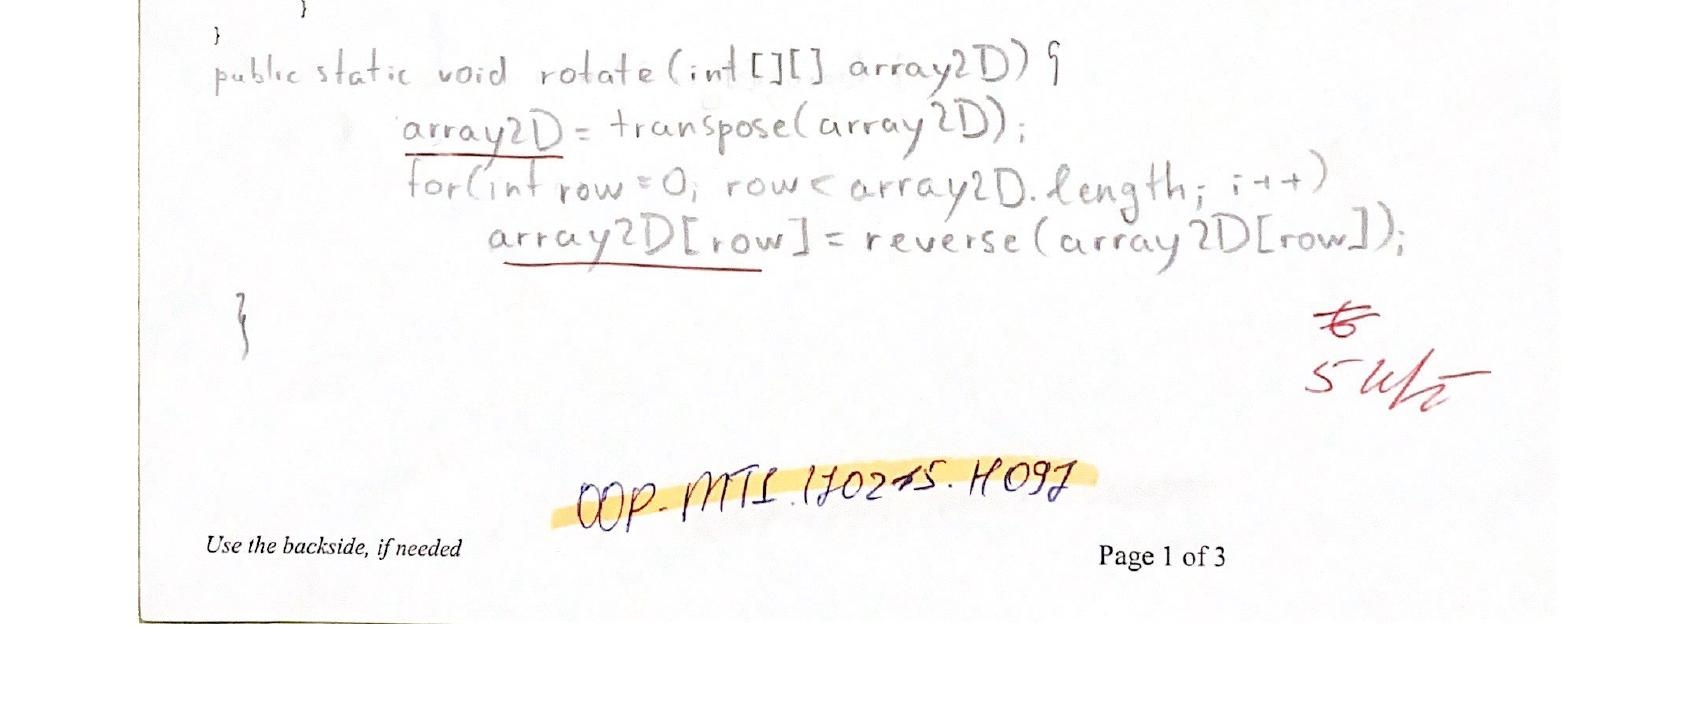 }
}
public static void rotate(int[][] array2D) {
array2D = transpose(array2D);
for(int row = 0; row < array2D.length; i++)
array2D[row] = reverse(array2D[row]);
}
6
5
OOP-MT1.170215.H097
Use the backside, if needed
Page 1 of 3